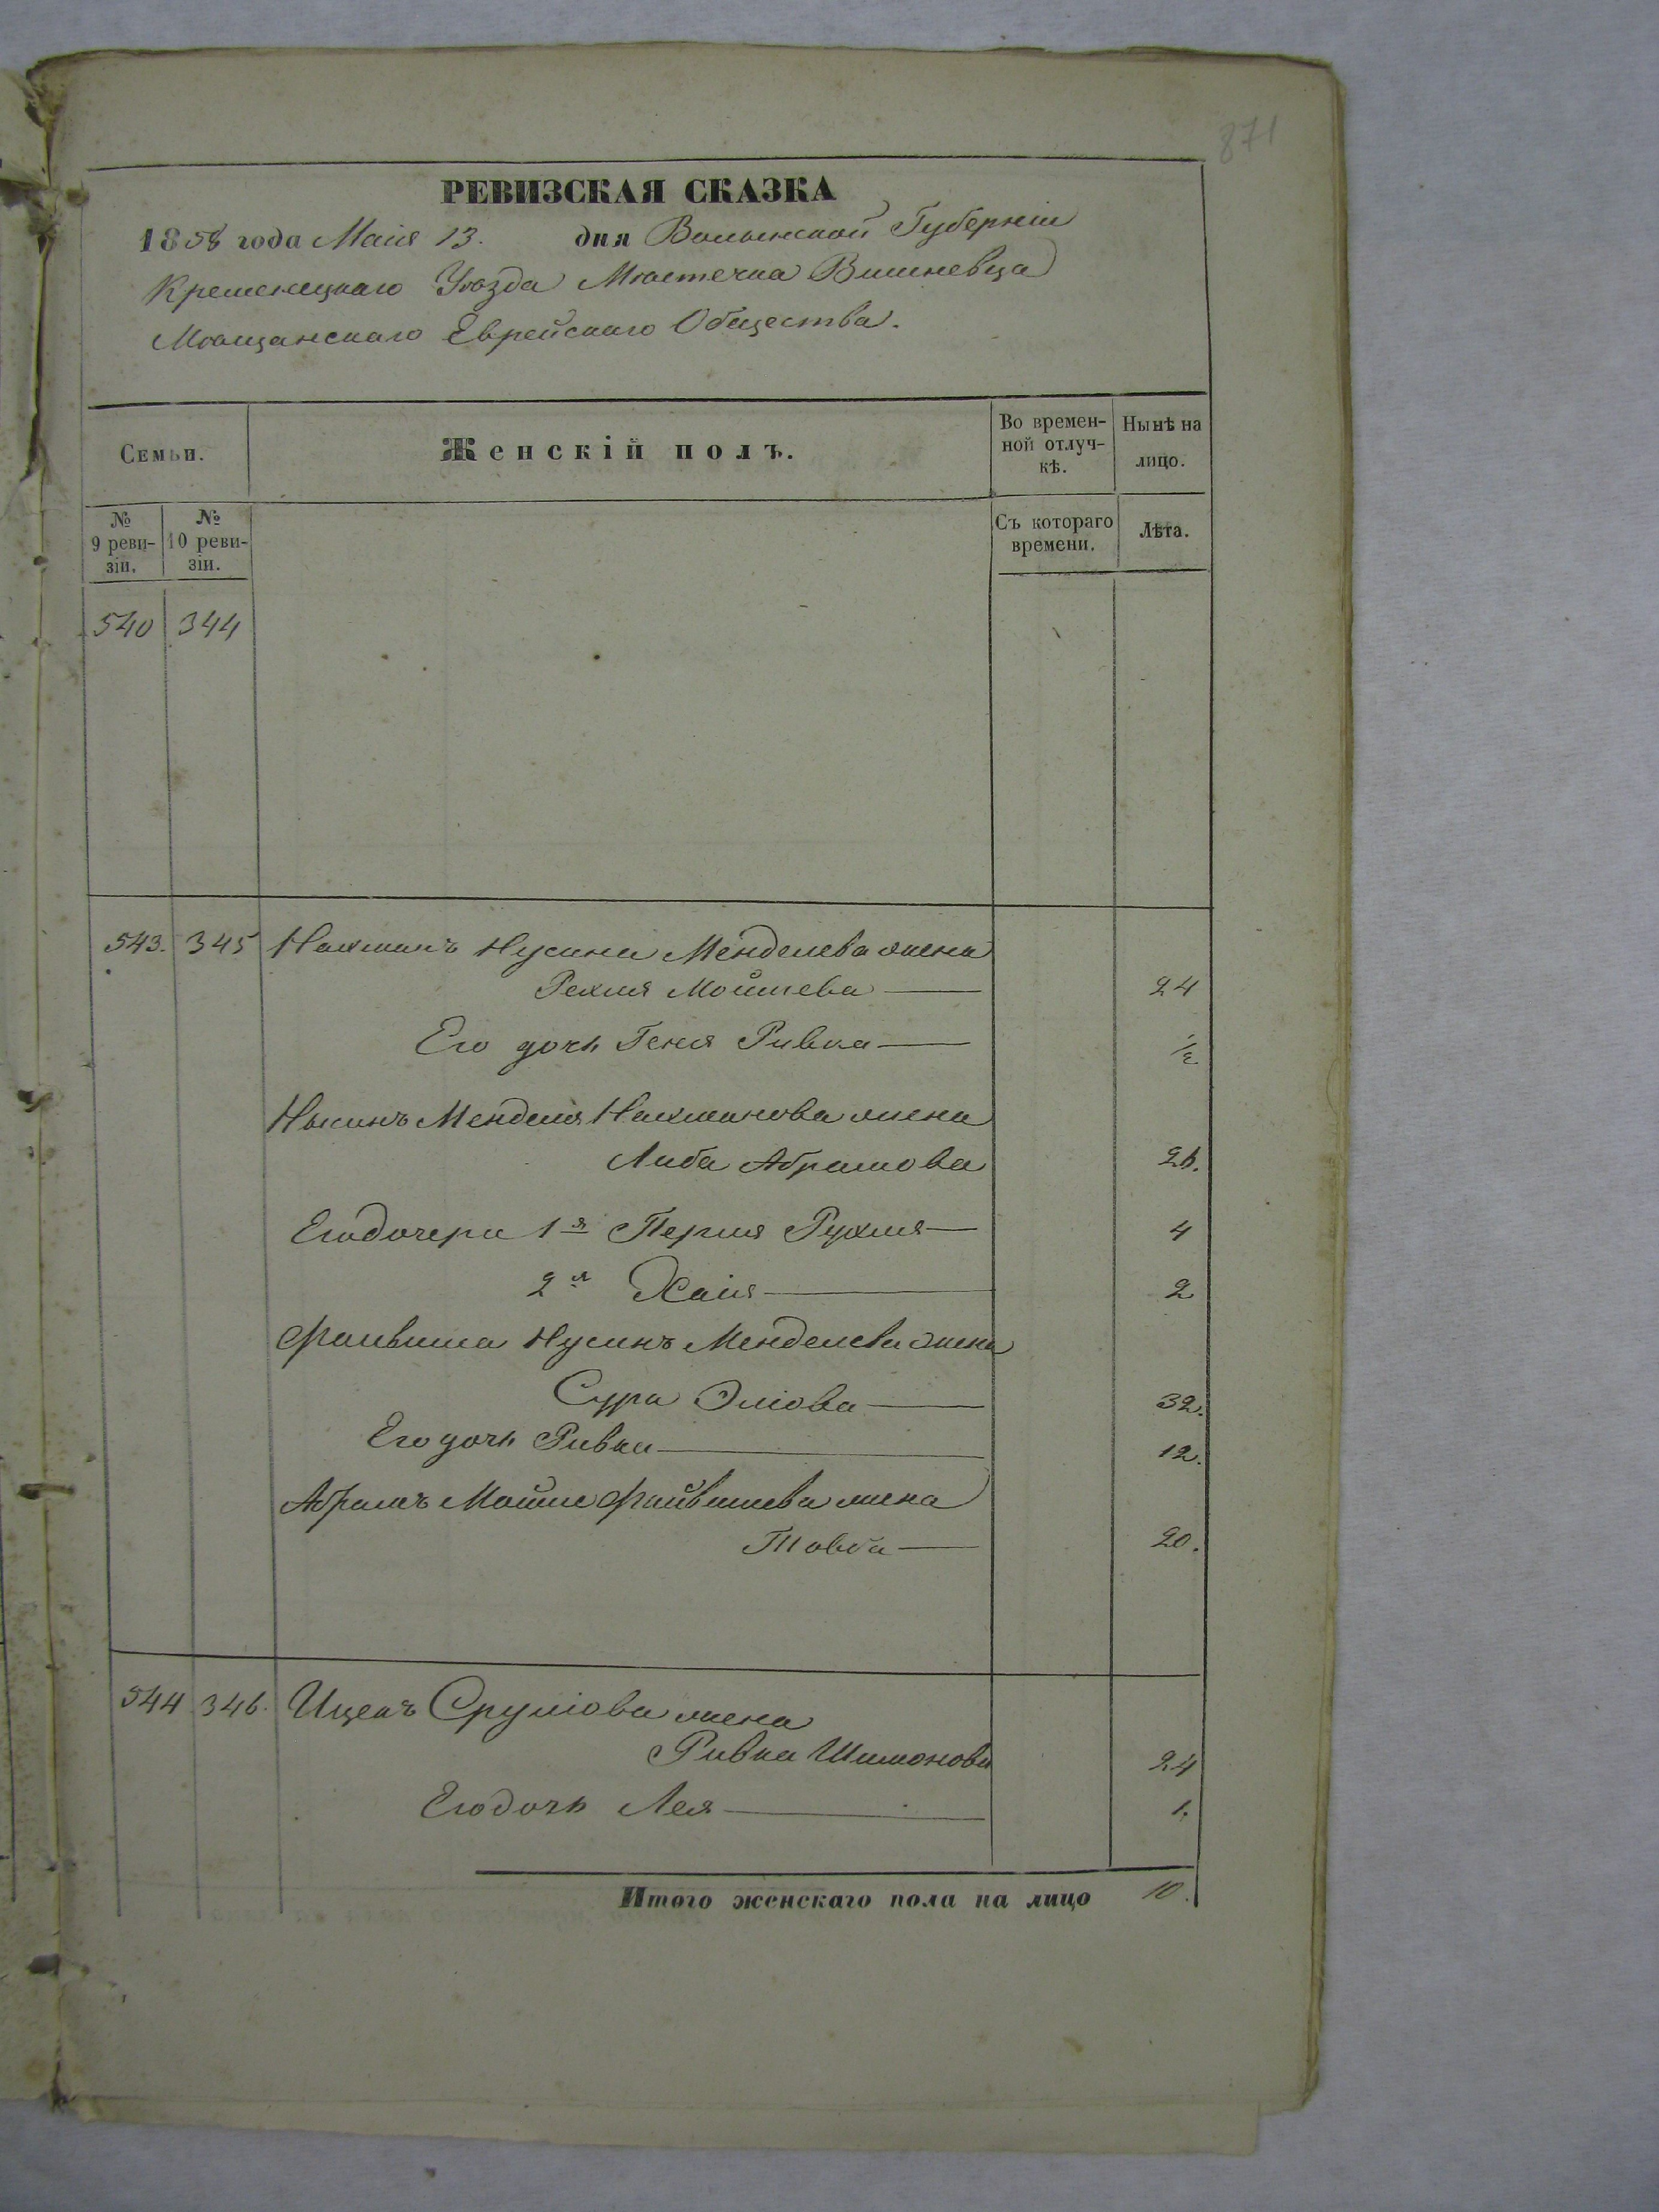 871
РЕВИЗСКАЯ СКАЗКА
1858 года Маія 13. дня Волынской Губерніи
Кременецкаго Уѣзда Мѣстечка Вишневца
Мѣщанскаго Еврейскаго Общества.
Семьи. Женскій полъ. Во временной отлучкѣ. Нынѣ на лицо.
№ 9 ревизіи. № 10 ревизіи. Съ котораго времени. Лѣта.
540 344
543. 345 Нахманъ Нусина Менделева жена
Рехля Мойшева 24
Его дочь Геня Ривка 1/2
Нысинъ Менделя Нахманова жена
Либа Абрамова 26.
Его дочери 1я Перля Рухля 4
2я Хаія 2
Файвиша Нусинъ Менделева жена
Сура Эліова 32.
Его дочь Ривка 12.
Абрамъ Мойше Файвишева жена
Товба 20.
544 346. Ицекъ Сруліова жена
Ривка Шимонова 24
Его дочь Лея 1.
Итого женскаго пола на лицо 10.